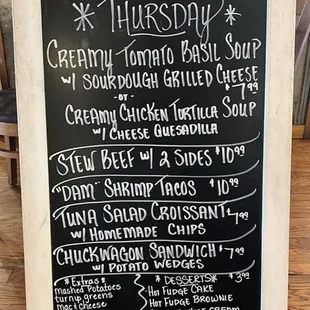 * THURSDAY *
CREAMY TOMATO BASIL SOUP
W/ SOURDOUGH GRILLED CHEESE
$7.99
-OR-
CREAMY CHICKEN TORTILLA SOUP
W/ CHEESE QUESADILLA
STEW BEEF W/ 2 SIDES $10.99
"DAM" SHRIMP TACOS $10.99
TUNA SALAD CROISSANT $7.99
W/ HOMEMADE CHIPS
CHUCKWAGON SANDWICH $7.99
W/ POTATO WEDGES
*Extras*
Mashed Potatoes
turnip greens
Mac & Cheese
*DESSERTS* $3.99
HOT FUDGE CAKE
HOT FUDGE BROWNIE
CREAM